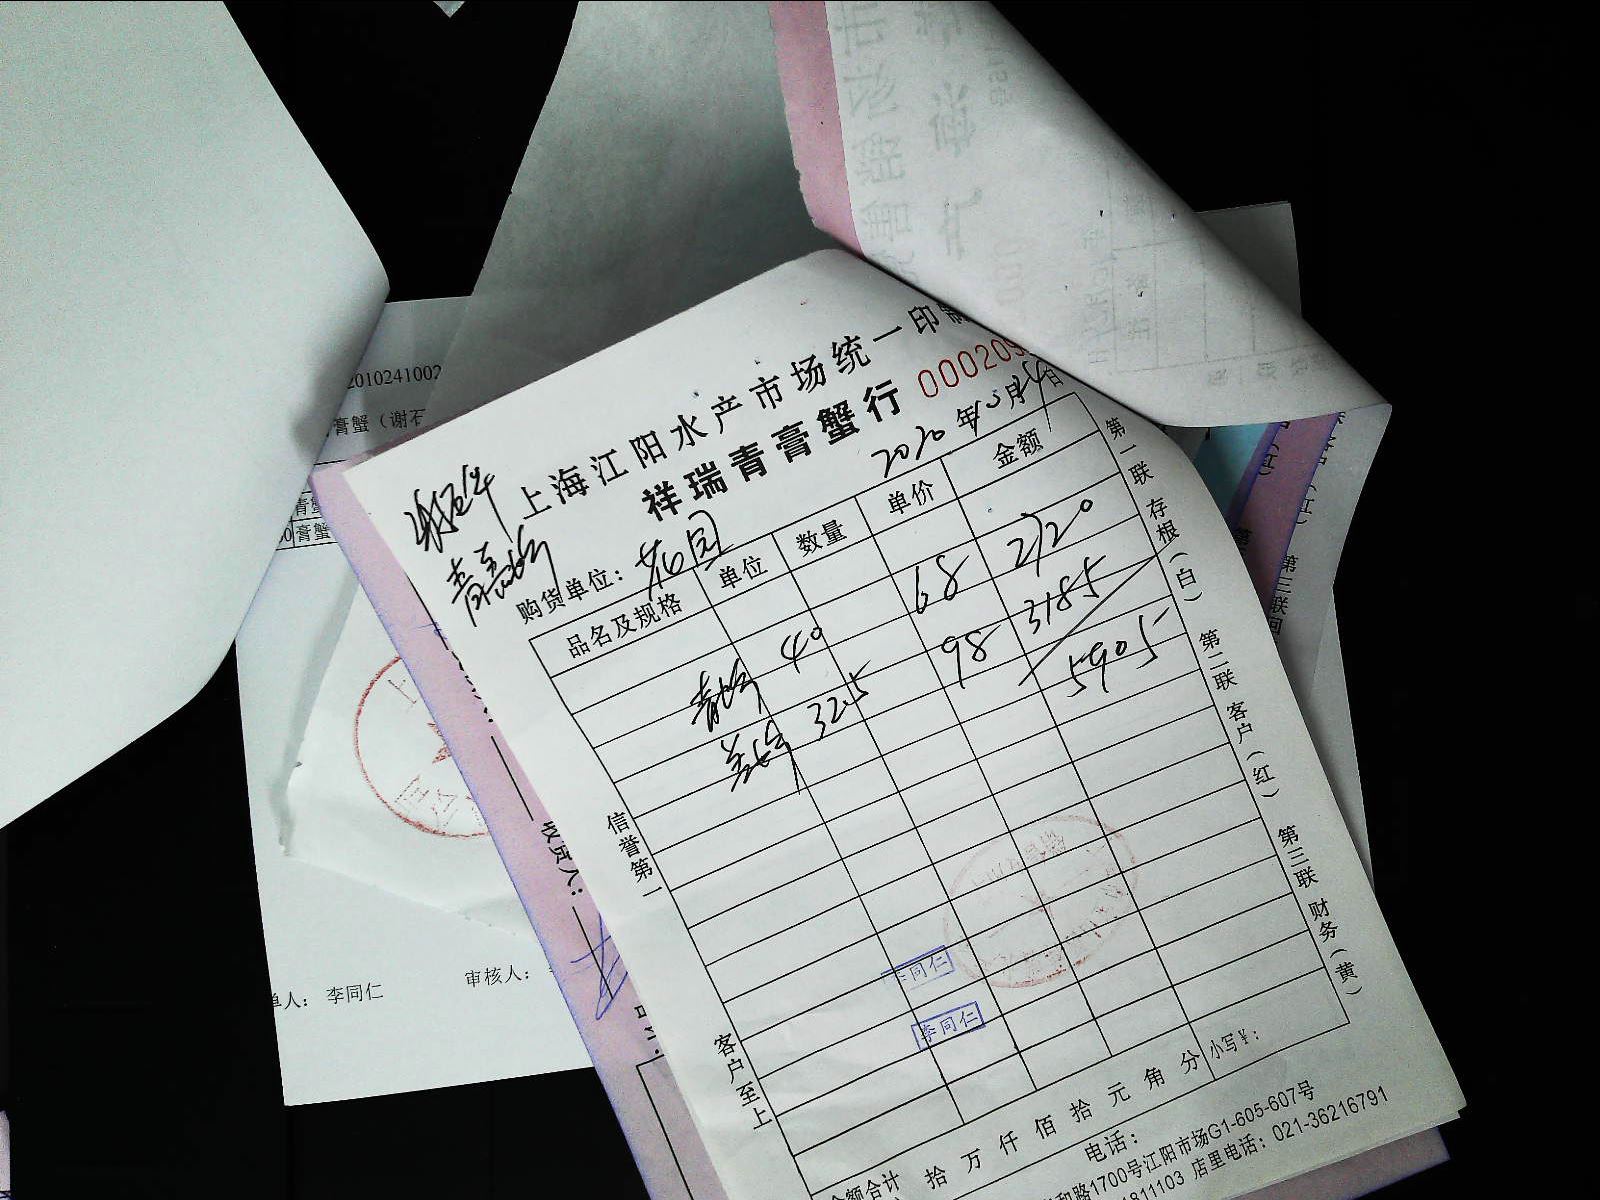 上海江阳水产市场统一印制
祥瑞青膏蟹行
000209
2020年10月24日
谢石华
青膏蟹
购货单位：花园
品名及规格 单位 数量 单价 金额
青蟹 40 68 2720
32.5 98 3185
5905
第一联 存根（白） 第二联 客户（红） 第三联 财务（黄）
信誉第一
客户至上
李同仁
李同仁
金额合计 拾 万 仟 佰 拾 元 角 分 小写¥：
电话：
和路1700号江阳市场G1-605-607号
1811103 店里电话：021-36216791
2010241002
膏蟹（谢石
青蟹
膏蟹
收货人：
单人： 李同仁
审核人：
第三联